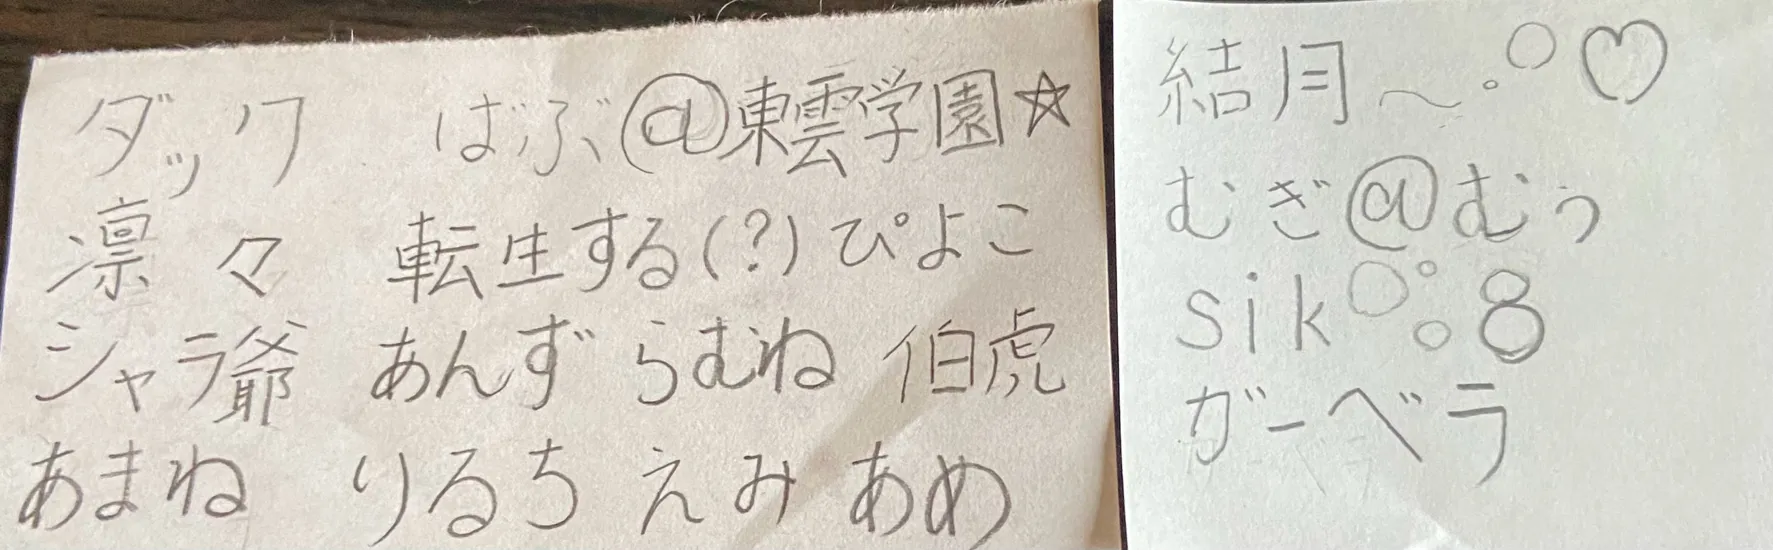 ダック ばぶ@東雲学園☆
凛々 転生する(?)ぴよこ
シャラ爺 あんず らむね 伯虎
あまね りるち えみ あめ
結月～.○♡
むぎ@むぅ
sik○°○8
ガーベラ